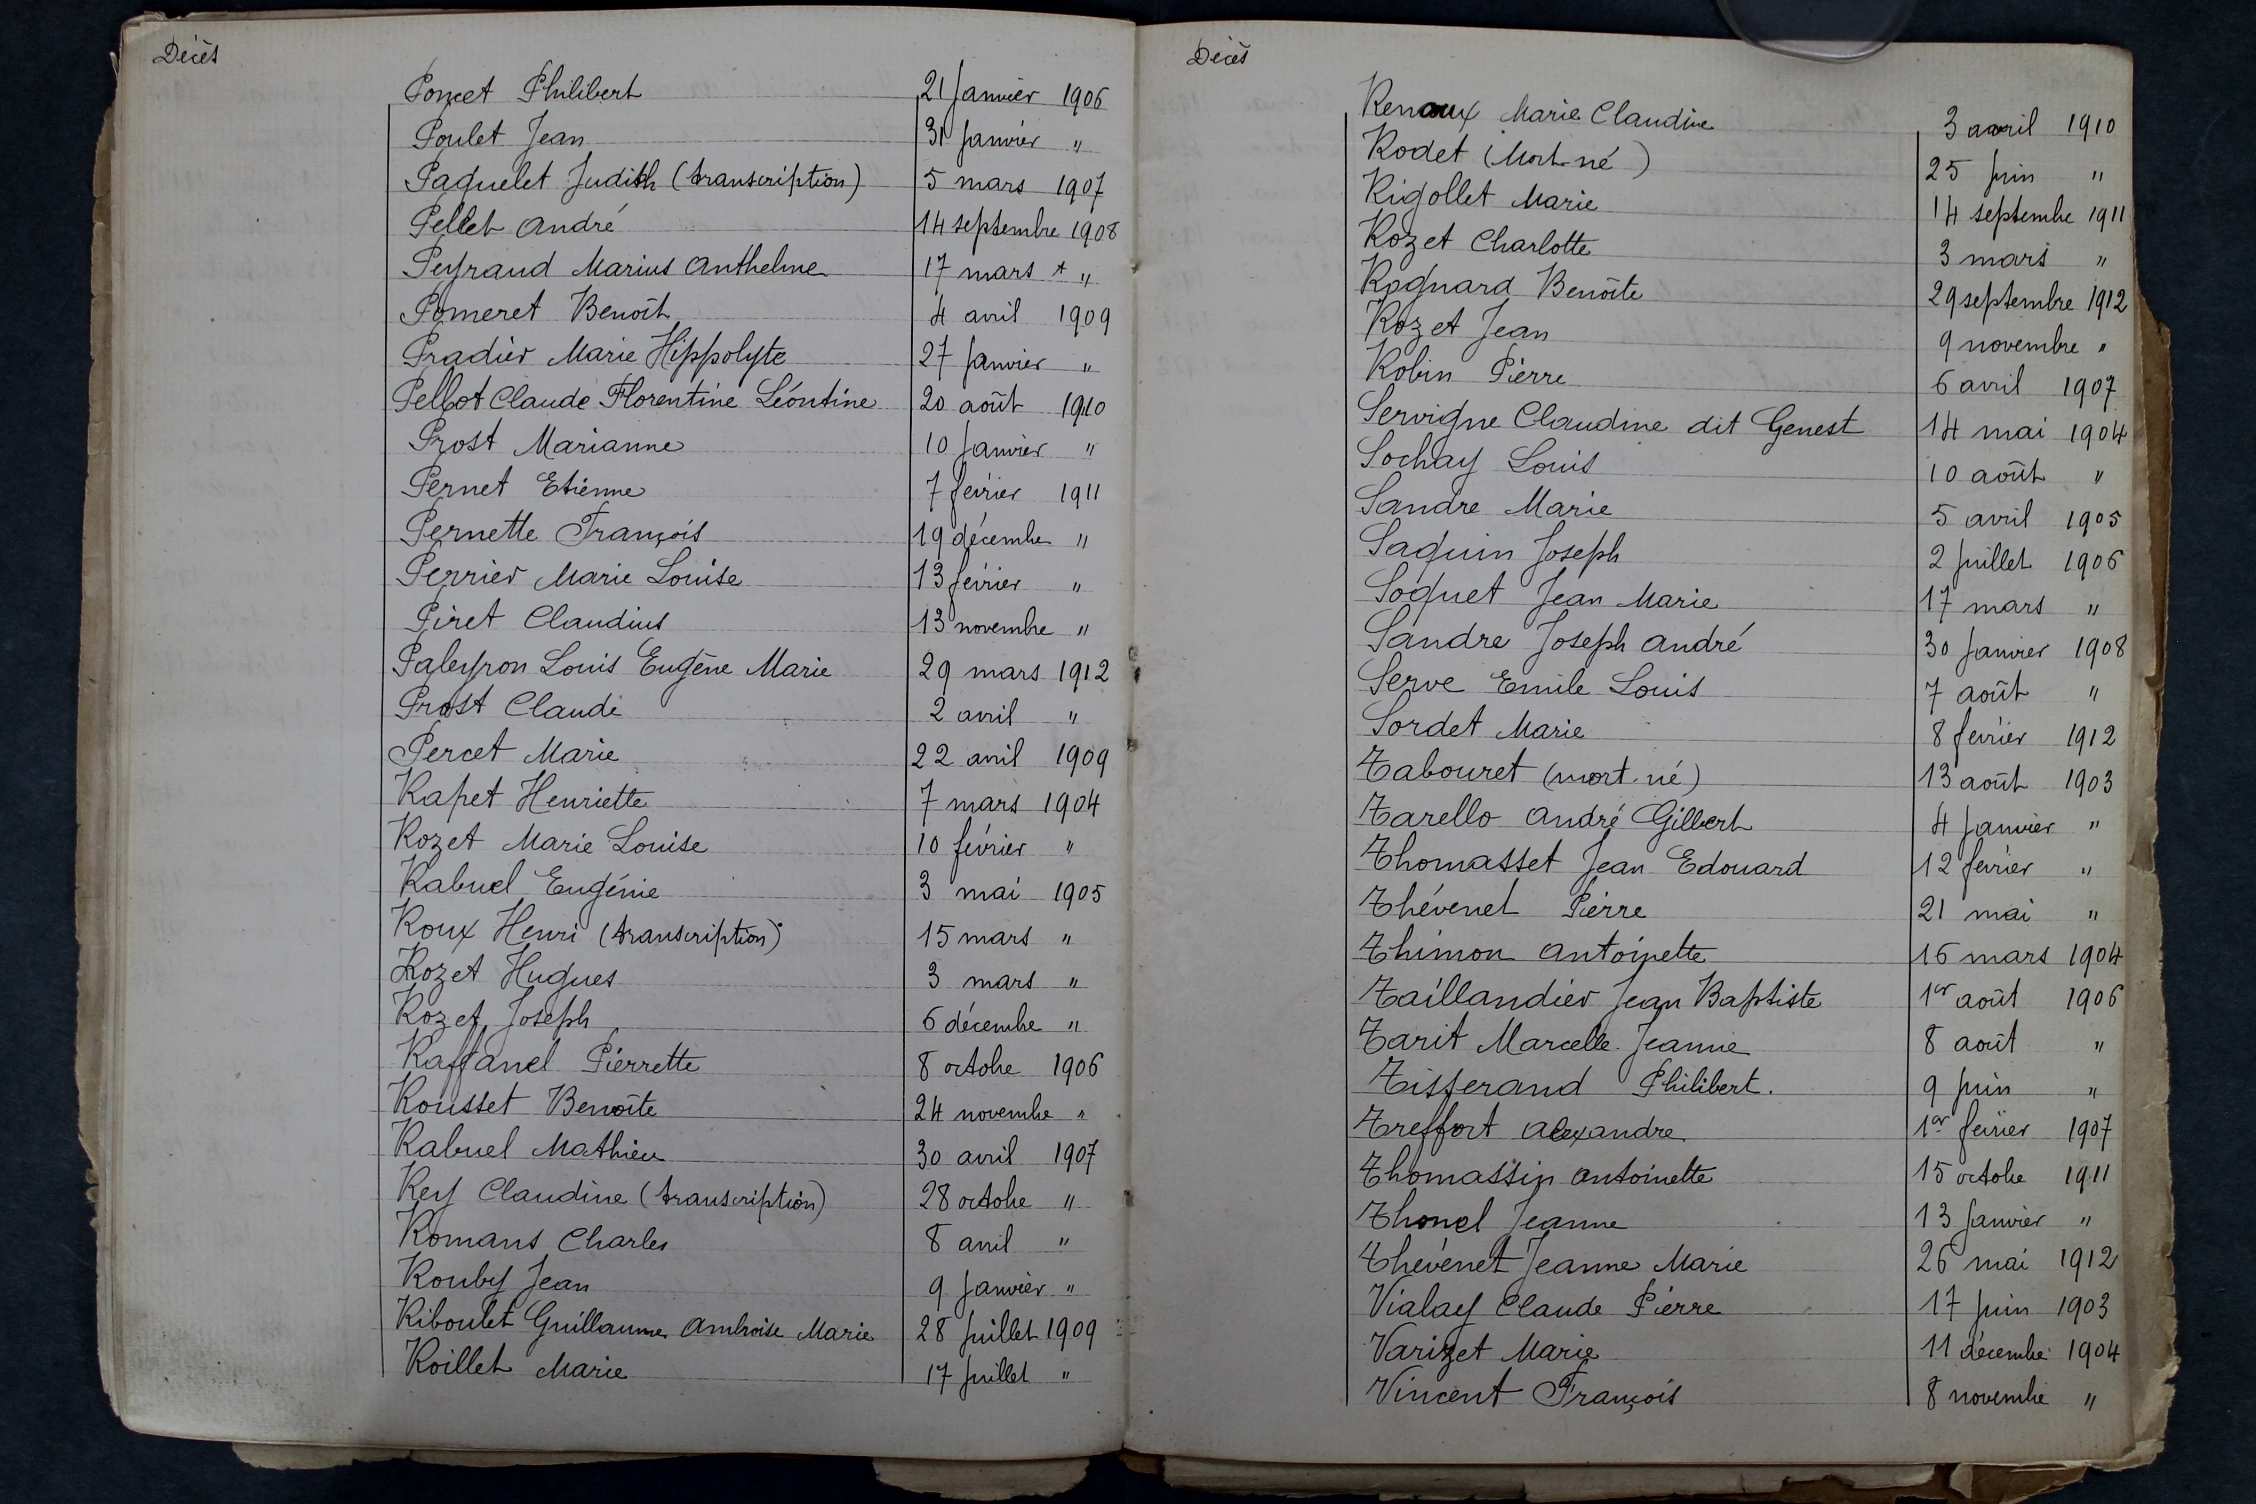 Décès
Poncet Philibert 21 Janvier 1906
Poulet Jean 31 Janvier "
Paquelet Judith (transcription) 5 mars 1907
Pellet André 14 septembre 1908
Peyraud Marius Anthelme 17 mars "
Pomeret Benoît 4 avril 1909
Pradier Marie Hippolyte 27 Janvier "
Pellot Claude Florentine Léontine 20 août 1910
Prost Marianne 10 Janvier "
Pernet Etienne 7 février 1911
Pernette François 19 décembre "
Perrier Marie Louise 13 février "
Piret Claudius 13 novembre "
Paleyron Louis Eugène Marie 29 mars 1912
Prost Claude 2 avril "
Percet Marie 22 avril 1909
Rapet Henriette 7 mars 1904
Rozet Marie Louise 10 février "
Rabuel Eugénie 3 mai 1905
Roux Henri (transcription) 15 mars "
Rozet Hugues 3 mars "
Rozet Joseph 6 décembre "
Raffanel Pierrette 8 octobre 1906
Rousset Benoîte 24 novembre "
Rabuel Mathieu 30 avril 1907
Rey Claudine (transcription) 28 octobre "
Romans Charles 8 avril "
Rouby Jean 9 Janvier "
Riboulet Guillaume Ambroise Marie 28 Juillet 1909
Roillet Marie 17 Juillet "
Décès
Renaux Marie Claudine 3 avril 1910
Rodet (Mort-né) 25 Juin "
Rigollet Marie 14 septembre 1911
Rozet Charlotte 3 mars "
Rognard Benoîte 29 septembre 1912
Rozet Jean 9 novembre "
Robin Pierre 6 avril 1907
Servigne Claudine dit Genest 14 mai 1904
Sochay Louis 10 août "
Sandre Marie 5 avril 1905
Saquin Joseph 2 Juillet 1906
Soquet Jean Marie 17 mars "
Sandre Joseph André 30 Janvier 1908
Serve Emile Louis 7 août "
Sordet Marie 8 février 1912
Tabouret (mort-né) 13 août 1903
Tarello André Gilbert 4 Janvier "
Thomasset Jean Edouard 12 février "
Thévenet Pierre 21 mai "
Thimon Antoinette 16 mars 1904
Taillandier Jean Baptiste 1er août 1906
Tarit Marcelle Jeanne 8 août "
Tisserand Philibert. 9 Juin "
Treffort Alexandre 1er février 1907
Thomassin Antoinette 15 octobre 1911
Thonel Jeanne 13 Janvier "
Thévenet Jeanne Marie 26 mai 1912
Vialay Claude Pierre 17 Juin 1903
Varizet Marie 11 décembre 1904
Vincent François 8 novembre "